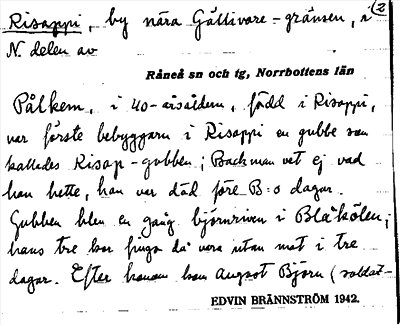 Risappi, by nära Gällivare-gränsen, i (2
N. delen av
Råneå sn och tg, Norrbottens län
Pålkem, i 40-årsåldern, född i Risappi,
var förste bebyggarn i Risappi en gubbe som
kallades Risap-gubben; Backman vet ej vad
han hette, han var död före B:s dagar.
Gubben blev en gång björnriven i Blåkölen;
hans tre barn fingo då vara utan mat i tre
dagar. Efter honom kom August Björn (soldat-
EDVIN BRÄNNSTRÖM 1942.